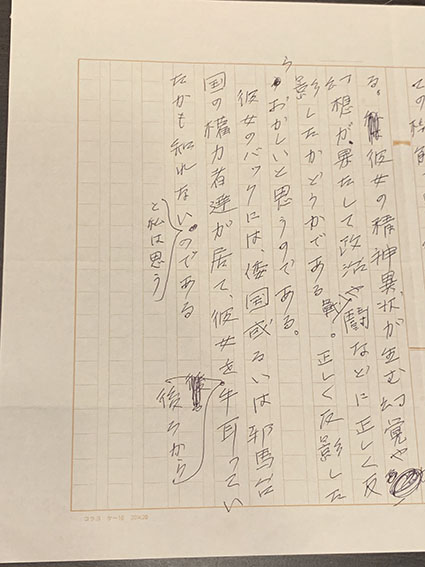 ての
る。彼女の精神異状が生む幻覚や
幻想が果たして政治や戦闘などに正しく反
影したかどうかである。正しく反影した
らおかしいと思うのである。
彼女のバックには、倭国或るいは邪馬台
国の権力者達が居て、彼女を牛耳ってい
後ろから
たかも知れない。のである
と私は思う